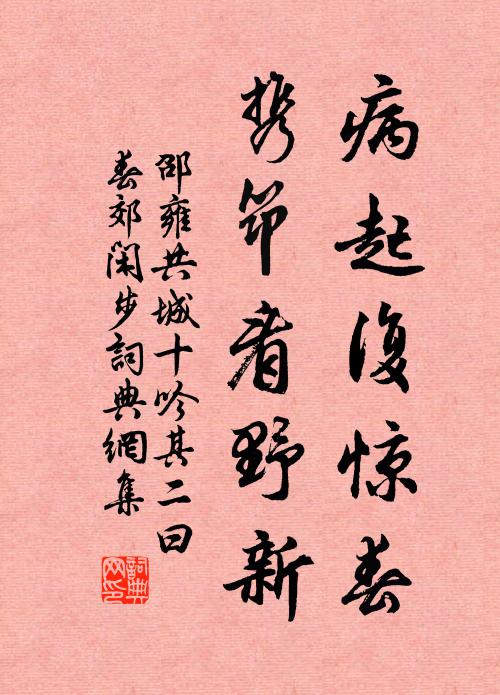 病起復惊春
携筇看野新
邵雍共城十吟其二曰
春郊闲步詞典網集
詞典网印